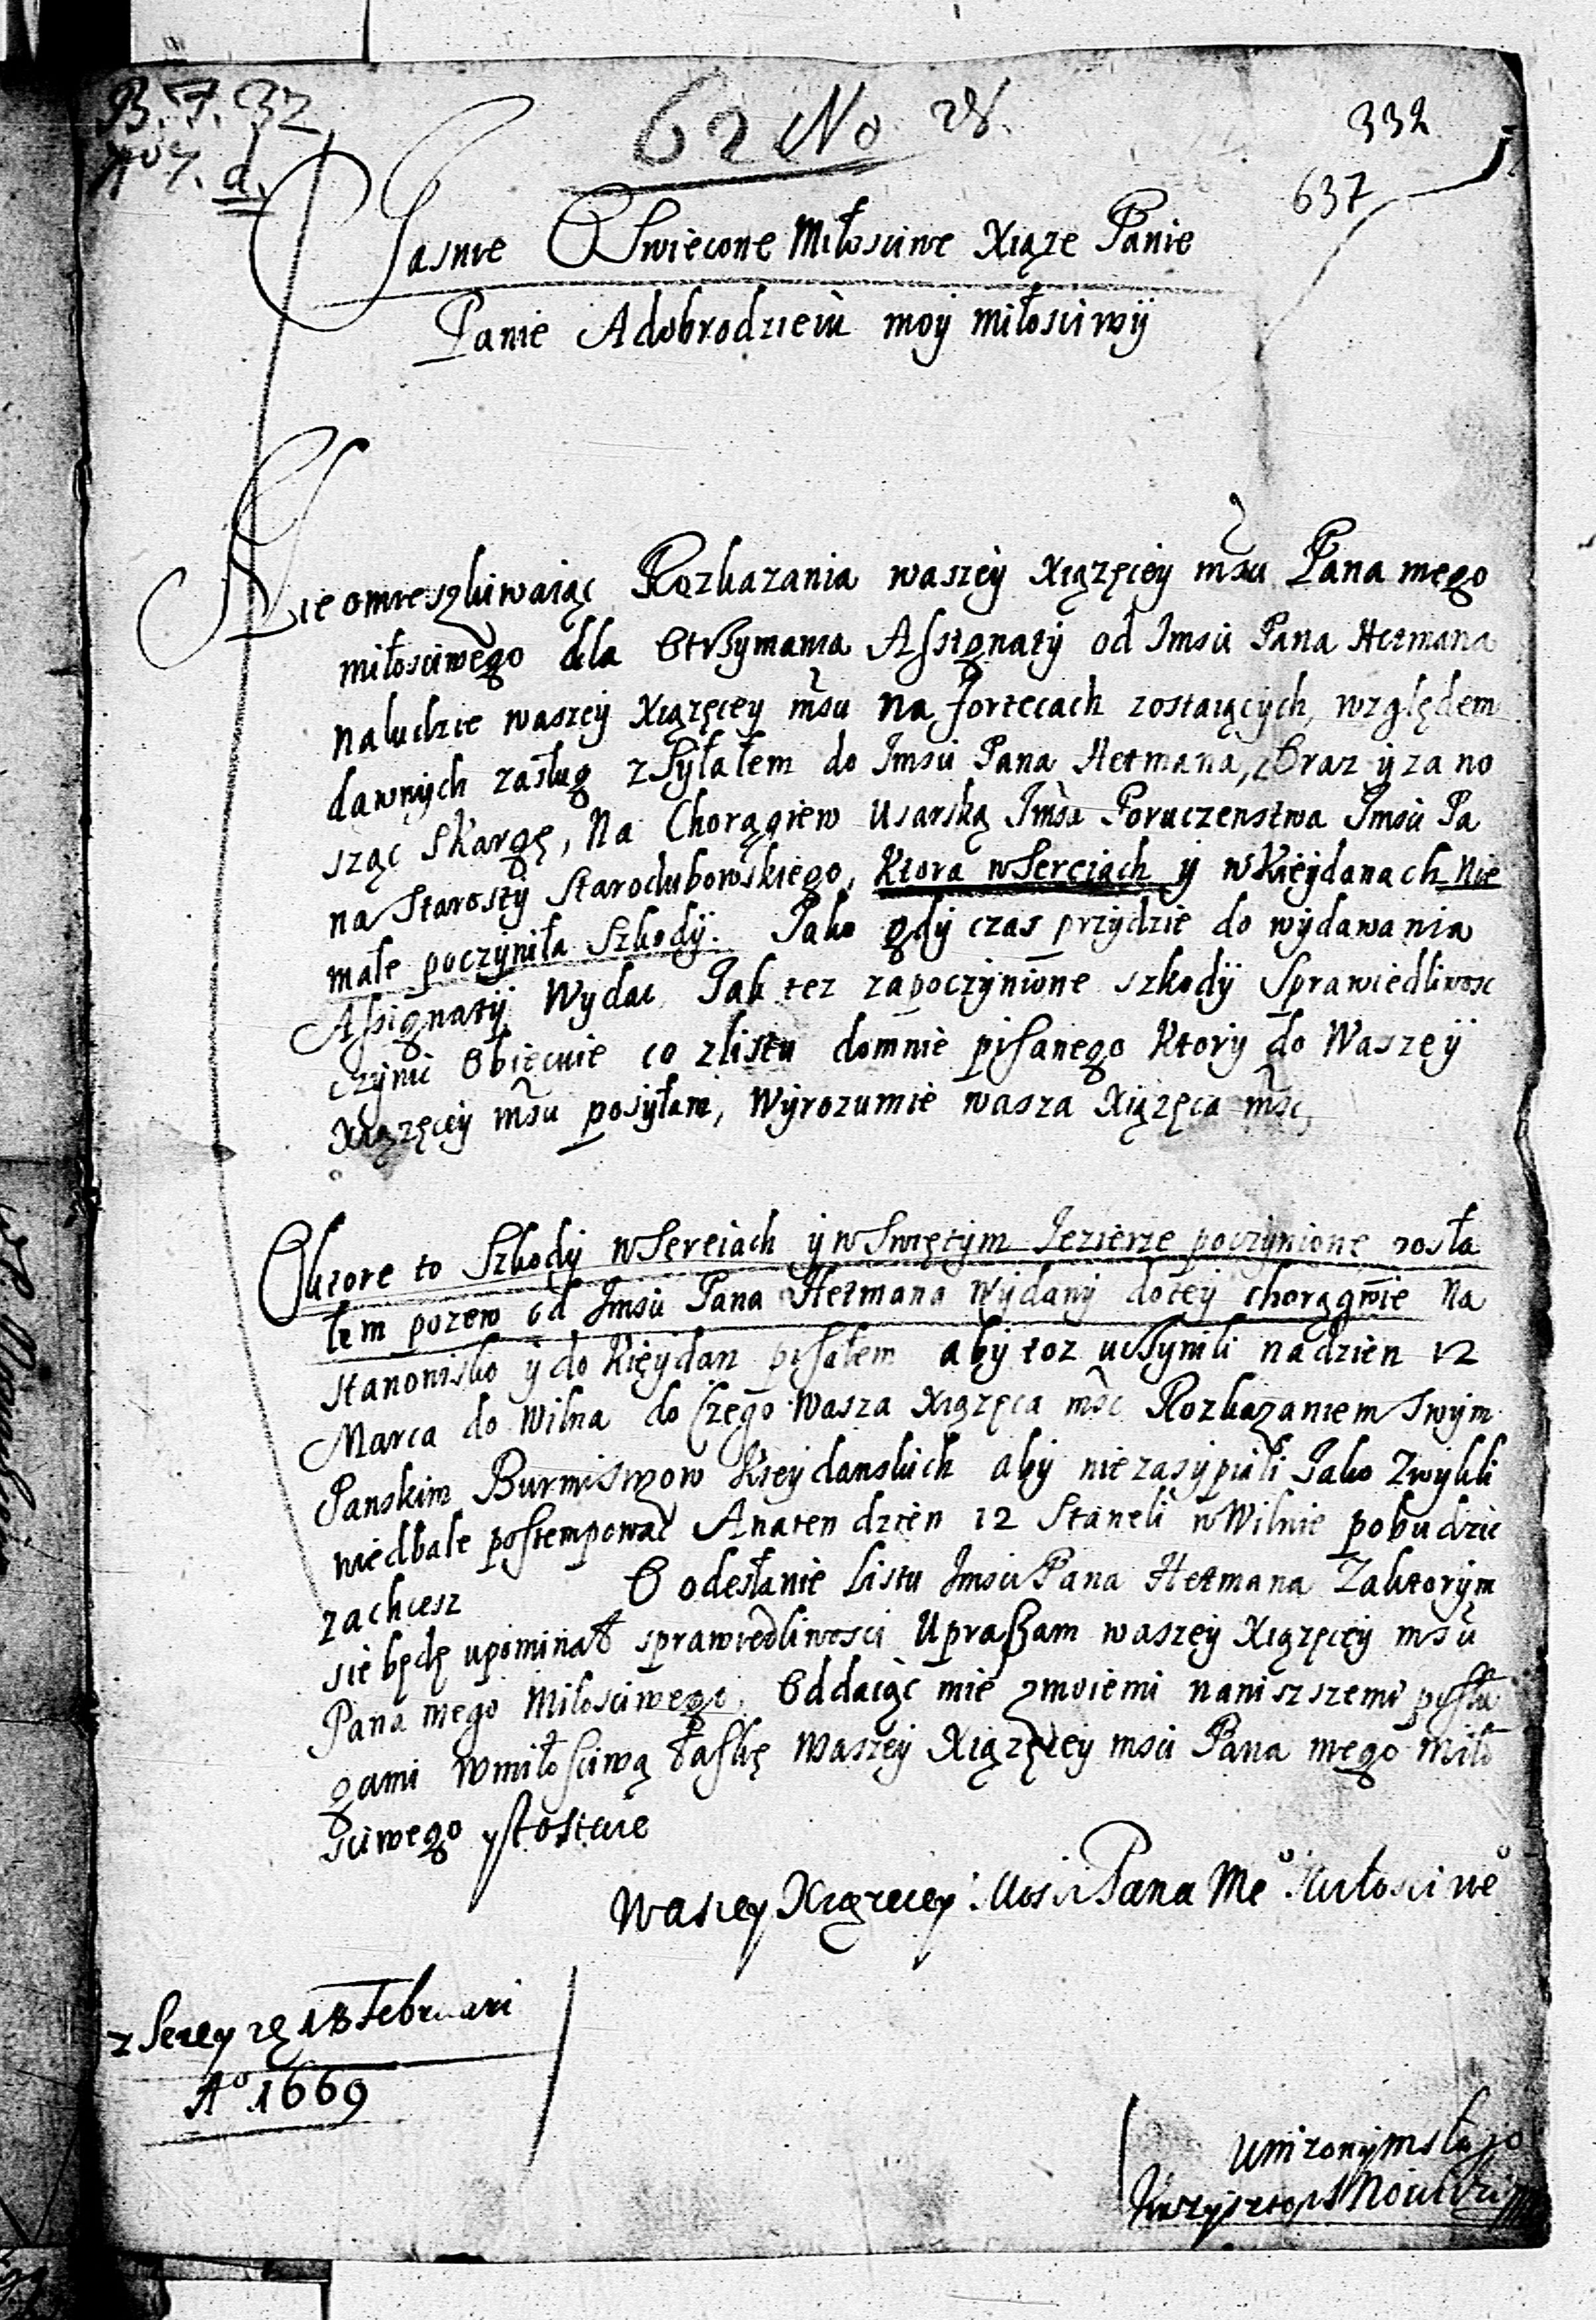 B.7.32
62 No 28.
332
637
Jasnie OSwiecone Miłosciwe Xiąze Panie
Panie A dobrodzieiu moÿ miłosciwÿ
Nie omieszkiwaiąc Rozkazania waszeÿ Xiązęcey mśu Pana mego
miłosciwego dla Otrzymania Assignatÿ od Jmsći Pana Hetmana
na ludzie waszeÿ Xiązęcey mśu na fortecach zostaiącÿch, względem
dawnÿch zasług zsÿłałem do Jmsći Pana Hetmana, Oraz ÿ zano
sząc Skargę, Na Chorągiew Usarską Jmśći Poruczenstwa Jmsći Pa
na Starostÿ Starodubowskiego, Ktora w Sereiach ÿ w Kieÿdanach Nie
małe poczÿniła Szkodÿ. Jako gdÿ czas przÿdzie do wÿdawania
Assignatÿ Wydac Jak tez za poczÿnione szkodÿ Sprawiedliwosc
czÿnić Obiecuie co z listu do mnie pisanego Ktorÿ do Waszeÿ
Xiązęceÿ mśu posÿłam, Wÿrozumie wasza Xiązęca mśc,
O ktore to Szkodÿ w Sereiach ÿ w Swiętÿm Jezierze poczÿnione posła
łem pozew od Jmsći Pana Hetmana Wÿdanÿ do teÿ chorągwie Na
Stanowisko ÿ do Kieÿdan pisałem abÿ toz uczÿnili na dzien 12
Marca do Wilna do czego Wasza Xiązęca mśc Rozkazaniem Swÿm
Panskim Burmistrzow Kieÿdanskich abÿ nie zasÿpiali Jako Zwÿkli
niedbale postempowac A na ten dzien 12 Staneli w Wilnie pobudzic
zachcesz O odesłanie Listu Jmsći Pana Hetmana Za ktorÿm
sie będę upominał sprawiedliwosci Upraszam waszeÿ Xiązęceÿ mśu
Pana mego Miłosciwego, Oddaiąc mie z moiemi naniszszemi posłu
gami w miłosciwą łaskę Waszeÿ Xiązęcey mśu Pana mego Miło
sciwego zostaie
Waszey Xiązęcey Mosći Pana Me⁰ Miłosciwe⁰
z Serey 18 Februari
A⁰ 1669
Unizonÿm sługo
Krzysztoph